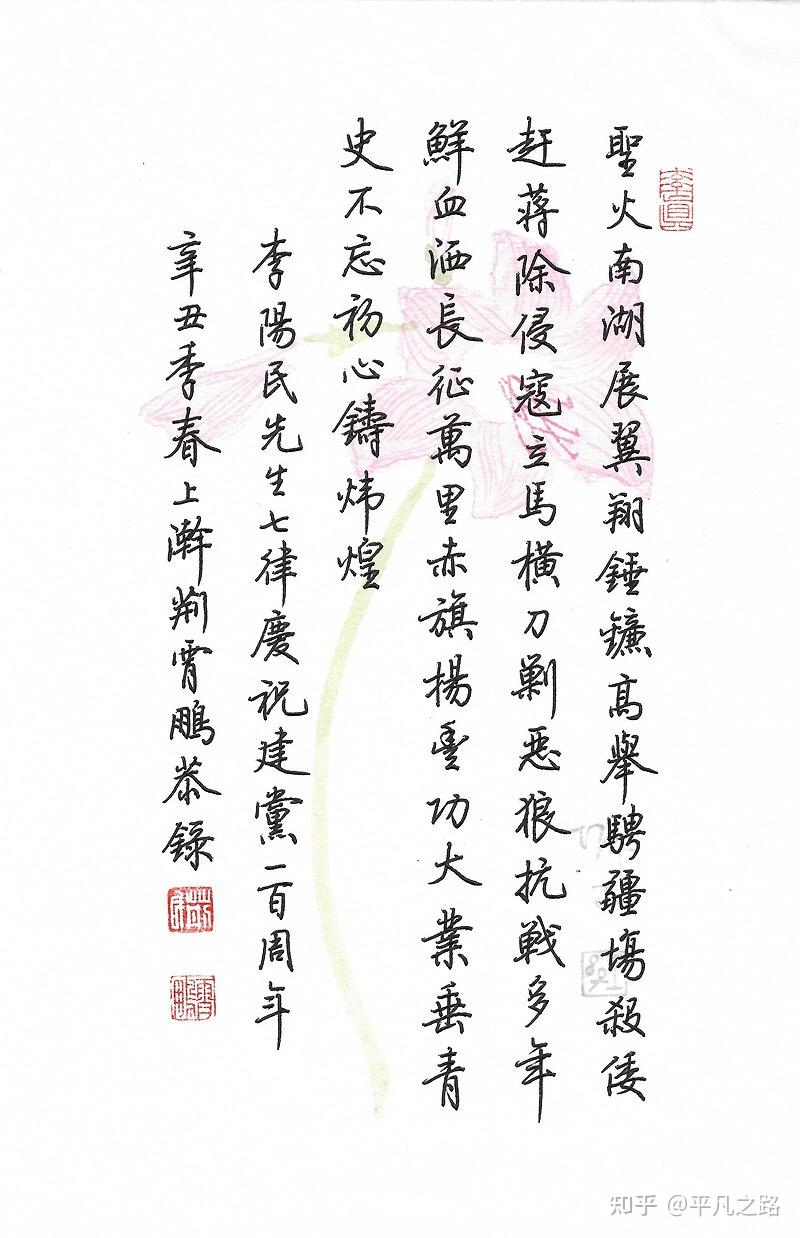 聖火南湖展翼翔錘鐮高舉騁疆場殺倭
赶蔣除侵寇立馬橫刀剿惡狼抗戰多年
鮮血洒長征萬里赤旗揚豐功大業垂青
史不忘初心鑄炜煌
李陽民先生七律慶祝建黨一百周年
辛丑季春上澣荆霄鵬恭録
知乎 @平凡之路